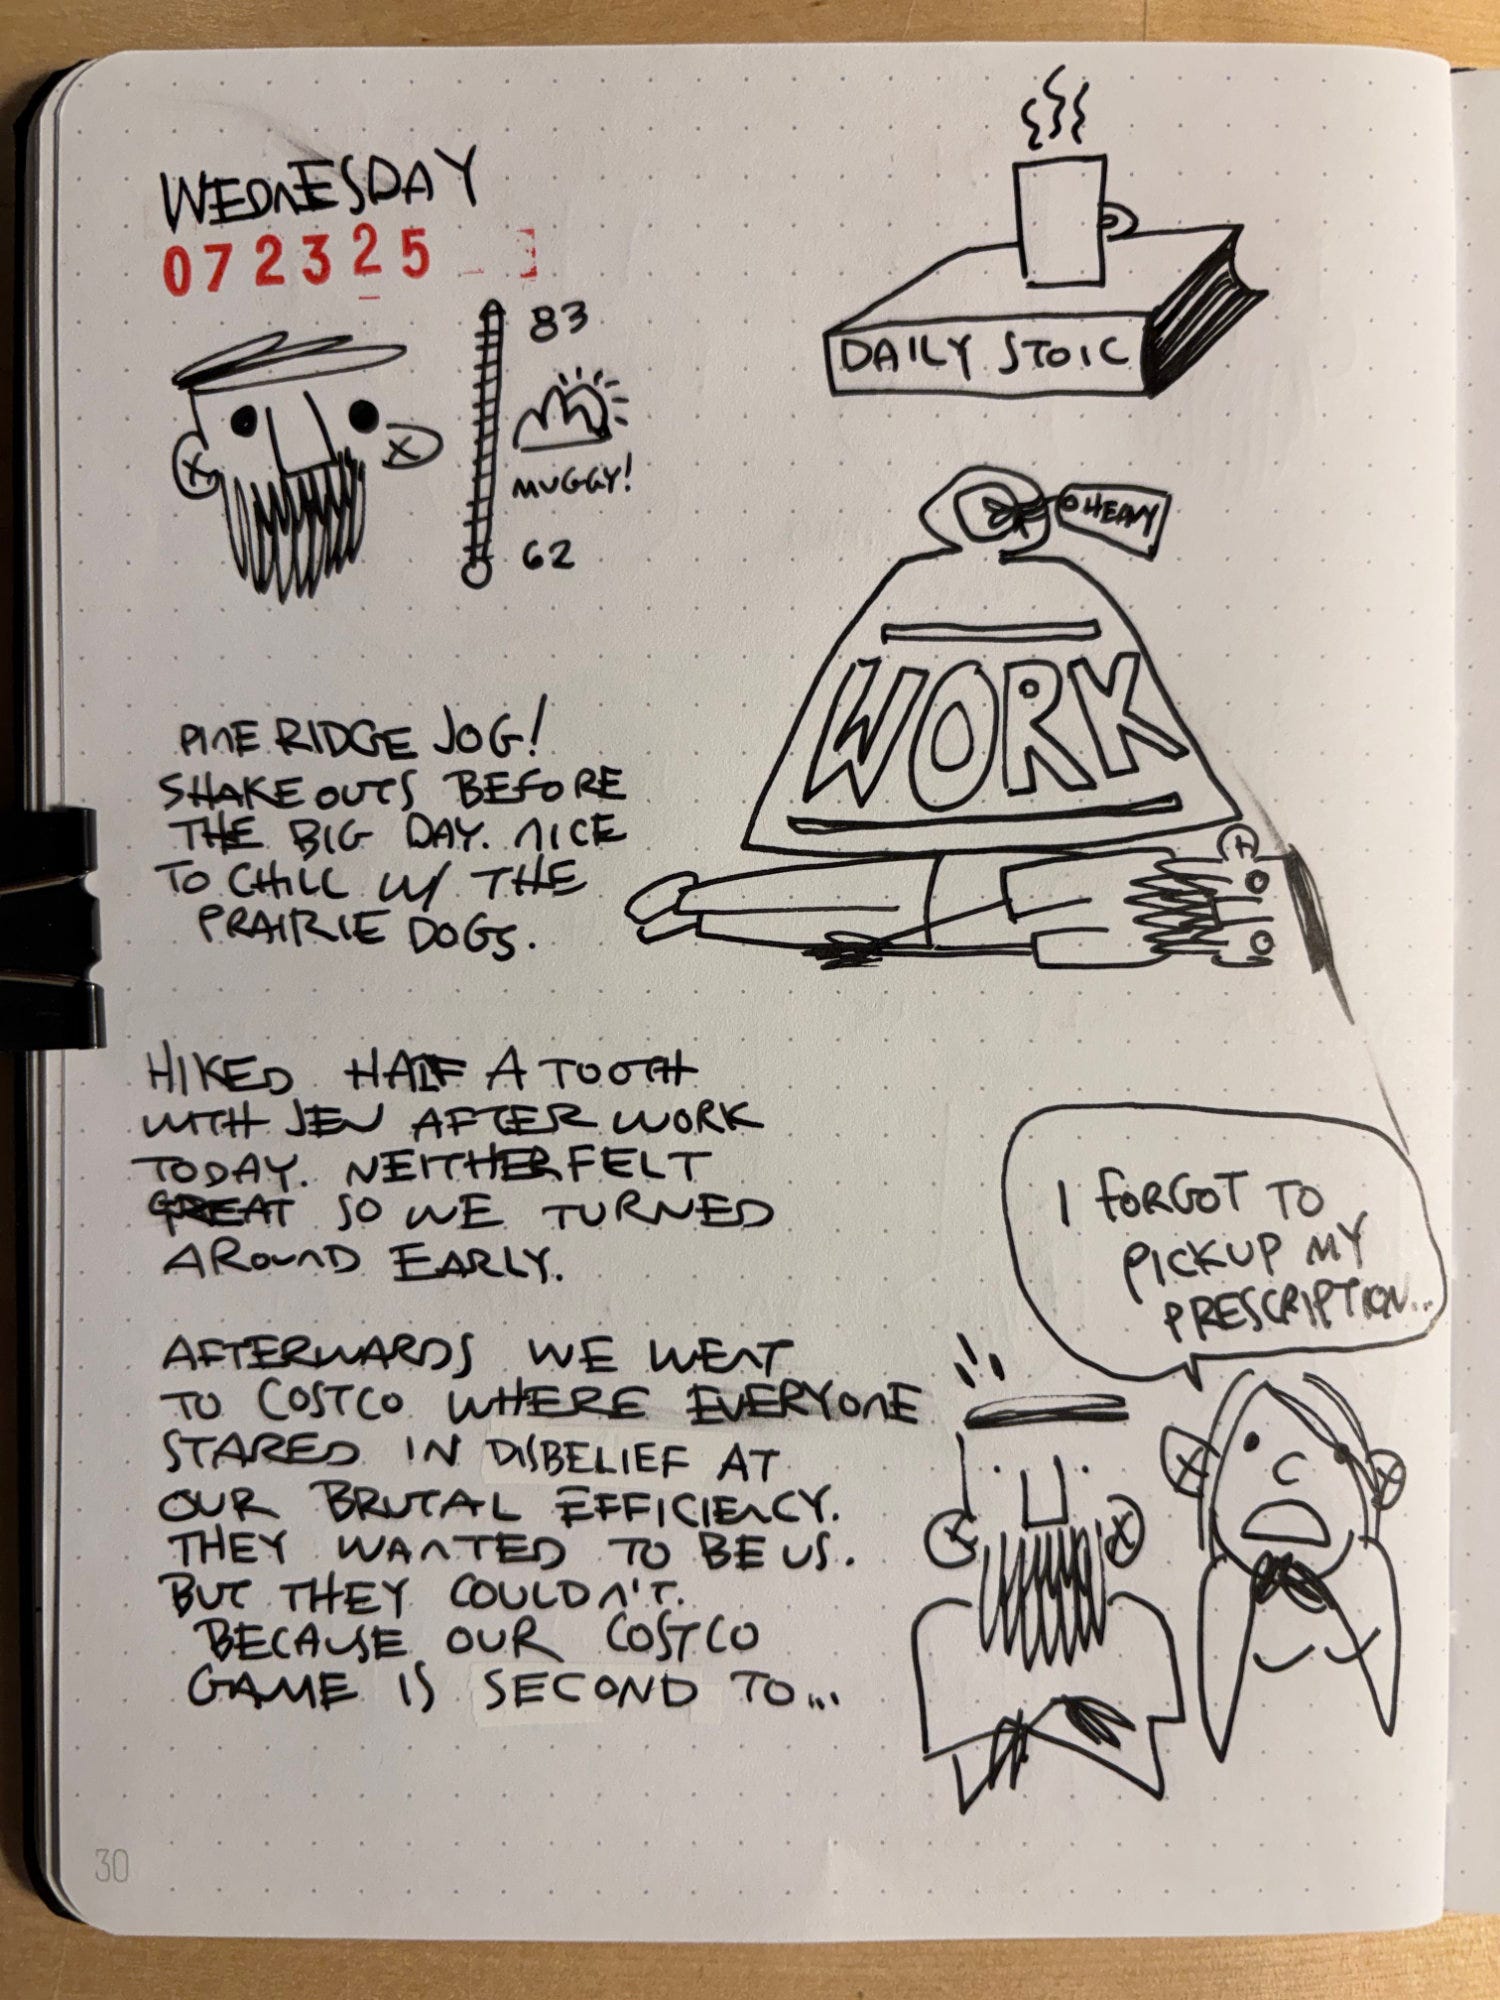 WEDNESDAY
072325
83
MUGGY!
62
DAILY STOIC
HEAVY
WORK
PINE RIDGE JOG!
SHAKEOUTS BEFORE
THE BIG DAY. NICE
TO CHILL W/ THE
PRAIRIE DOGS.
HIKED HALF A TOOTH
WITH JEN AFTER WORK
TODAY. NEITHER FELT
GREAT SO WE TURNED
AROUND EARLY.
AFTERWARDS WE WENT
TO COSTCO WHERE EVERYONE
STARED IN DISBELIEF AT
OUR BRUTAL EFFICIENCY.
THEY WANTED TO BE US.
BUT THEY COULDN'T.
BECAUSE OUR COSTCO
GAME IS SECOND TO...
I FORGOT TO
PICKUP MY
PRESCRIPTION...
30